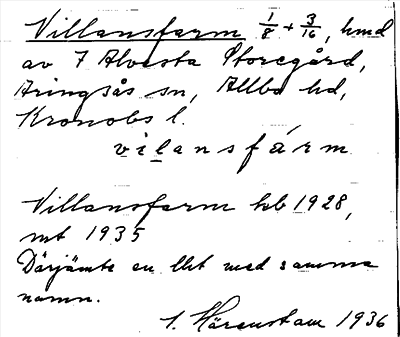 Villansfarm 1/8 + 3/16, hmd
av 7 Alvesta Storegård,
Aringsås sn, Allbo hd,
Kronobs l.
vilansfárm
Villansfarm hb 1928,
mt 1935
Därjämte en lht med samma
namn.
I. Härenstam 1936